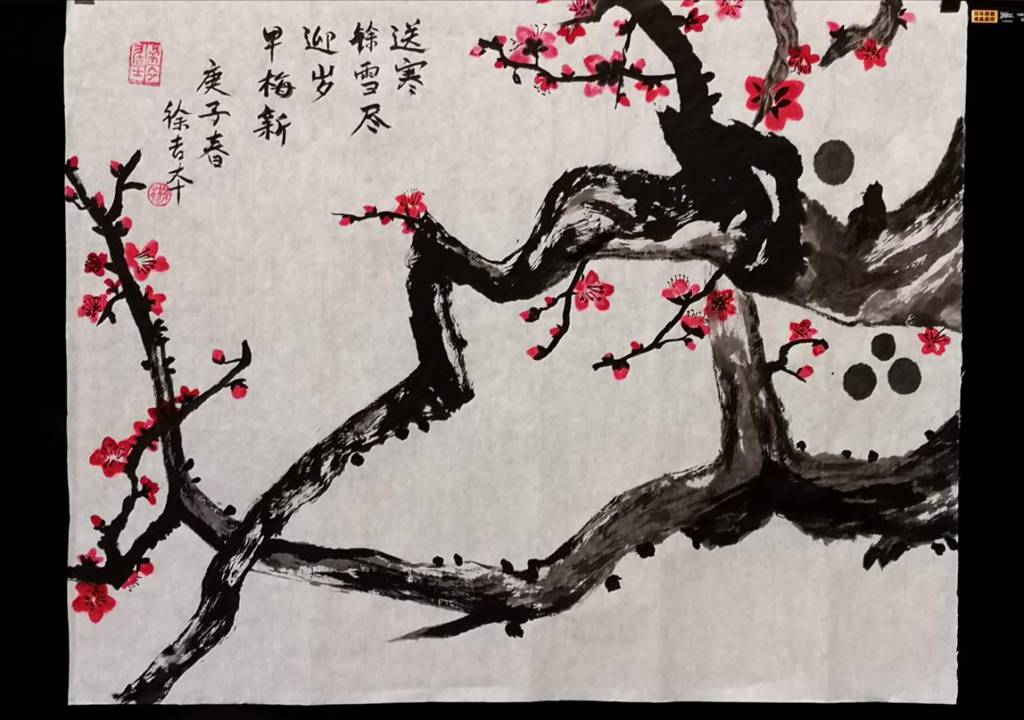 送寒
馀雪尽
迎岁
早梅新
庚子春
徐吉夲